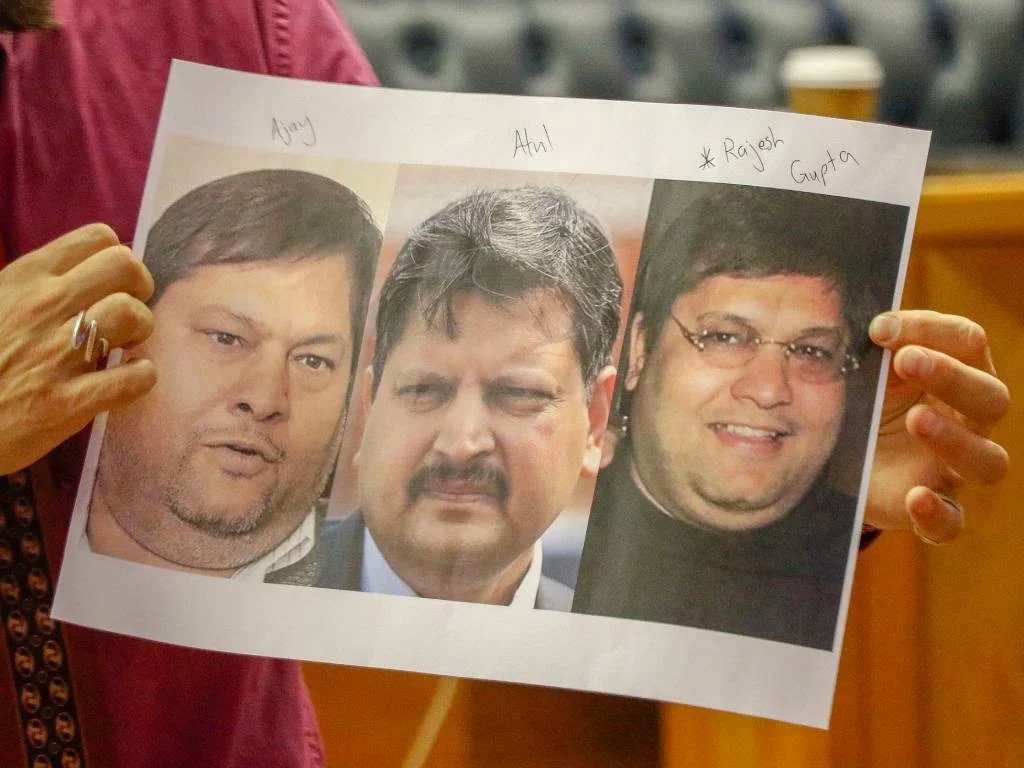 Ajay
Atul
* Rajesh
Gupta